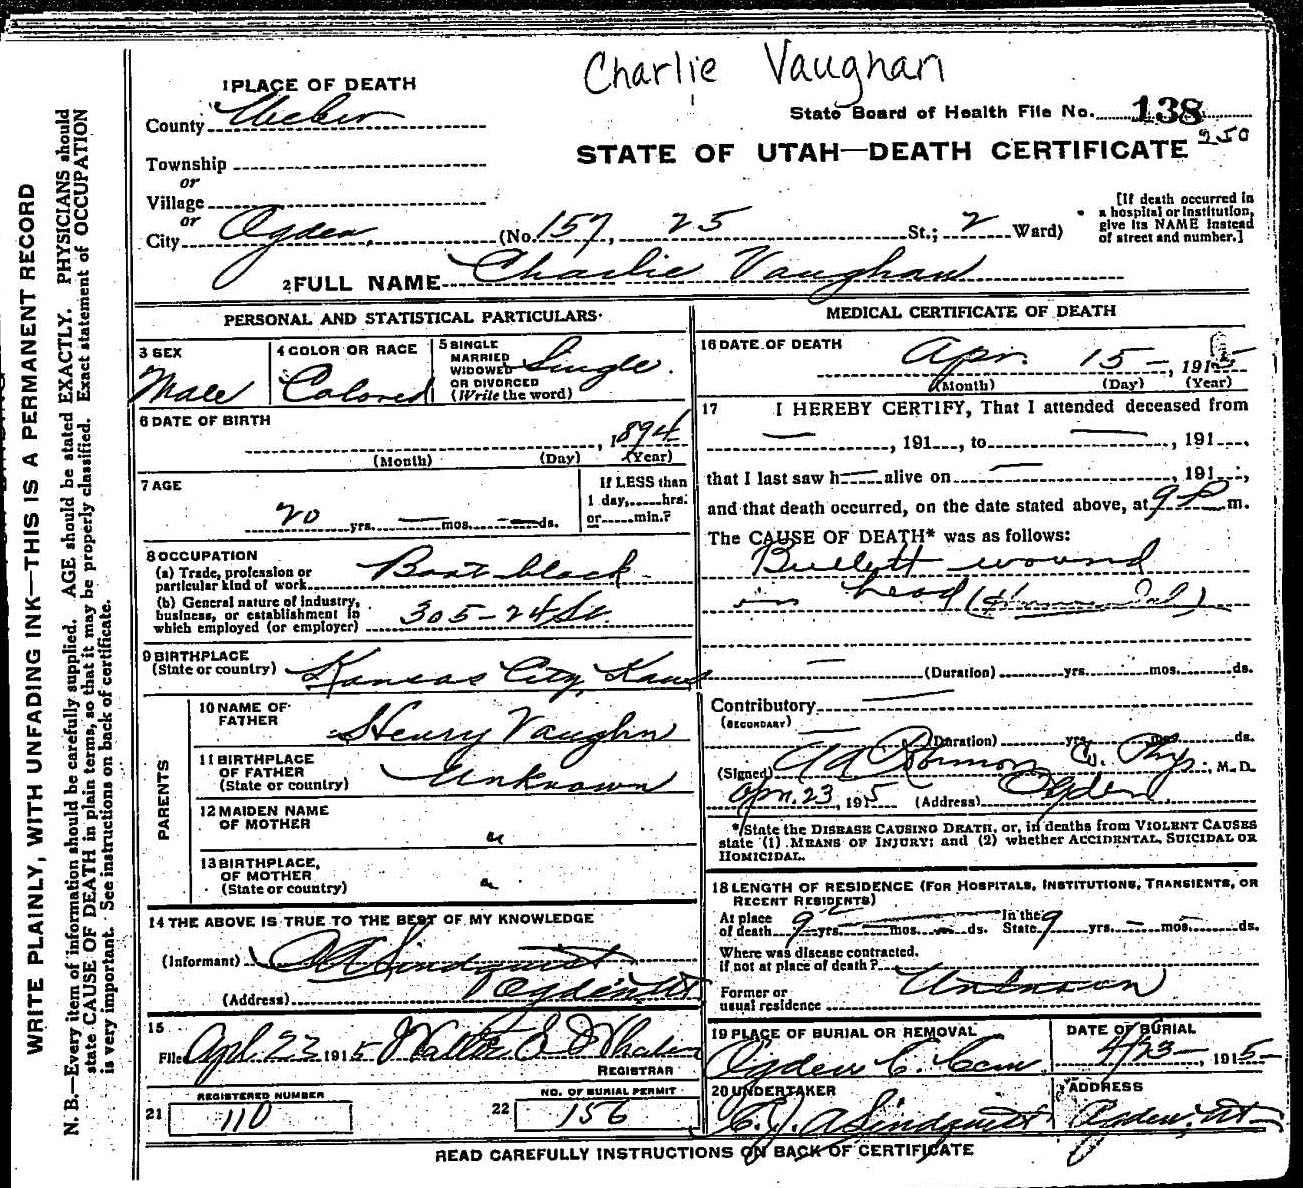 Charlie Vaughan
1 PLACE OF DEATH
County Weber
State Board of Health File No. 138
250
Township
or
STATE OF UTAH—DEATH CERTIFICATE
Village
or
City Ogden, (No. 157, 25 St.; 2 Ward)
[If death occurred in
a hospital or institution,
give its NAME instead
of street and number.]
2 FULL NAME Charlie Vaughan
PERSONAL AND STATISTICAL PARTICULARS
3 SEX
Male
4 COLOR OR RACE
Colored
5 SINGLE
MARRIED
WIDOWED
OR DIVORCED
(Write the word)
Single.
6 DATE OF BIRTH
, 1894
(Month) (Day) (Year)
7 AGE
20 yrs. — mos. — ds.
If LESS than
1 day, hrs.
or min.?
8 OCCUPATION
(a) Trade, profession or
particular kind of work Boot black
(b) General nature of industry,
business, or establishment in
which employed (or employer) 305-24 St.
9 BIRTHPLACE
(State or country) Kansas City, Kans
PARENTS
10 NAME OF
FATHER Henry Vaughn
11 BIRTHPLACE
OF FATHER
(State or country) Unknown
12 MAIDEN NAME
OF MOTHER "
13 BIRTHPLACE,
OF MOTHER
(State or country) "
14 THE ABOVE IS TRUE TO THE BEST OF MY KNOWLEDGE
(Informant) Lindquist
(Address) Ogden, Ut
15
Filed Apl. 23 1915 Walter Whalen
REGISTRAR
21 REGISTERED NUMBER
110
22 NO. OF BURIAL PERMIT
156
MEDICAL CERTIFICATE OF DEATH
16 DATE OF DEATH
Apr. 15 —, 1915
(Month) (Day) (Year)
17 I HEREBY CERTIFY, That I attended deceased from
—, 191 , to —, 191 ,
that I last saw h— alive on —, 191 ,
and that death occurred, on the date stated above, at 9 P m.
The CAUSE OF DEATH* was as follows:
Bullett wound
in head (Homicidal)
— (Duration) yrs. mos. ds.
Contributory —
(SECONDARY)
— (Duration) yrs. mos. ds.
(Signed) Co. Phys., M. D.
Apr. 23, 1915 (Address) Ogden
*State the DISEASE CAUSING DEATH, or, in deaths from VIOLENT CAUSES
state (1) MEANS OF INJURY; and (2) whether ACCIDENTAL, SUICIDAL OR
HOMICIDAL.
18 LENGTH OF RESIDENCE (FOR HOSPITALS, INSTITUTIONS, TRANSIENTS, OR
RECENT RESIDENTS)
At place
of death 9 yrs. — mos. — ds. In the
State 9 yrs. — mos. — ds.
Where was disease contracted.
If not at place of death?
Former or
usual residence Unknown
19 PLACE OF BURIAL OR REMOVAL
Ogden C. Cem.
DATE OF BURIAL
4/23 —, 1915
20 UNDERTAKER
Lindquist
ADDRESS
Ogden, Ut
READ CAREFULLY INSTRUCTIONS ON BACK OF CERTIFICATE
WRITE PLAINLY, WITH UNFADING INK—THIS IS A PERMANENT RECORD
N. B.—Every item of information should be carefully supplied. AGE should be stated EXACTLY. PHYSICIANS should
state CAUSE OF DEATH in plain terms, so that it may be properly classified. Exact statement of OCCUPATION
is very important. See instructions on back of certificate.